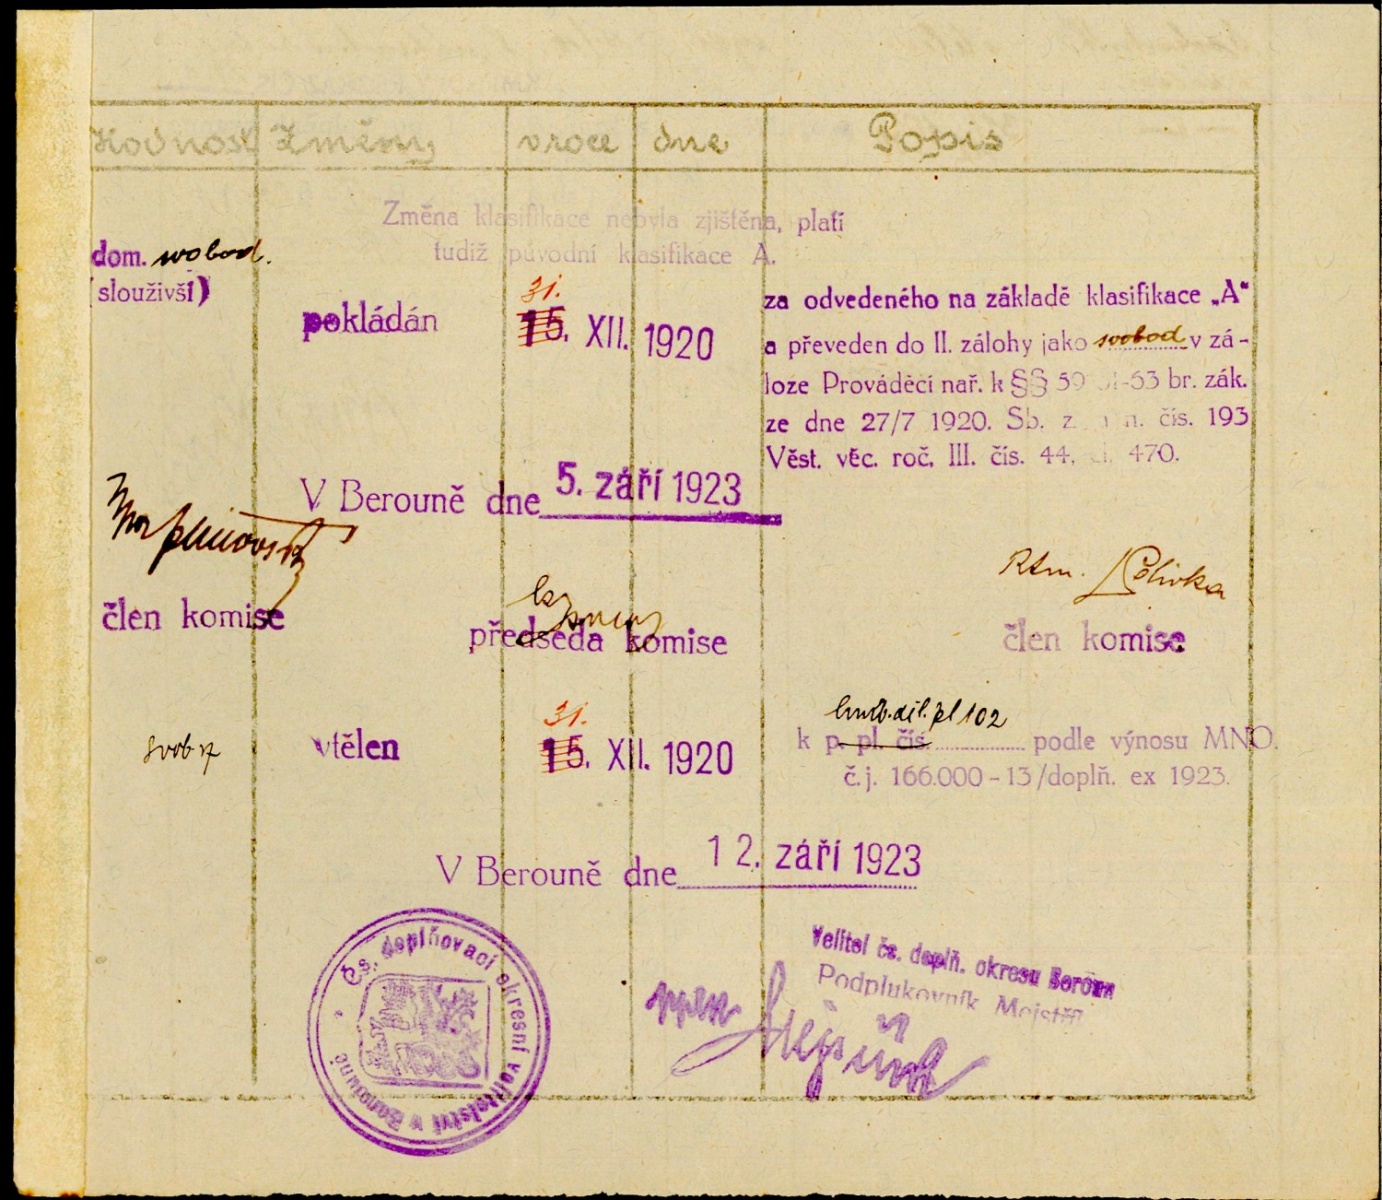 Hodnost Změny vroce dne Popis
Změna klasifikace nebyla zjištěna, platí
tudíž původní klasifikace A.
dom. svobod.
(sloužívší)
pokládán
31.
15. XII. 1920
za odvedeného na základě klasifikace „A"
a převeden do II. zálohy jako svobod v zá-
loze Prováděcí nař. k §§ 59 61-63 br. zák.
ze dne 27/7 1920. Sb. z. a n. čís. 193
Věst. věc. roč. III. čís. 44, čl. 470.
V Berouně dne 5. září 1923
Rtm. Polívka
člen komise
předseda komise
člen komise
svob
vtělen
31.
15. XII. 1920
pl 102
k p. pl. čís. podle výnosu MNO.
č.j. 166.000-13/doplň. ex 1923.
V Berouně dne 12. září 1923
Čs. doplňovací okresní velitelství v Berouně
Velitel čs. doplň. okresu Beroun
Podplukovník Mejstřík